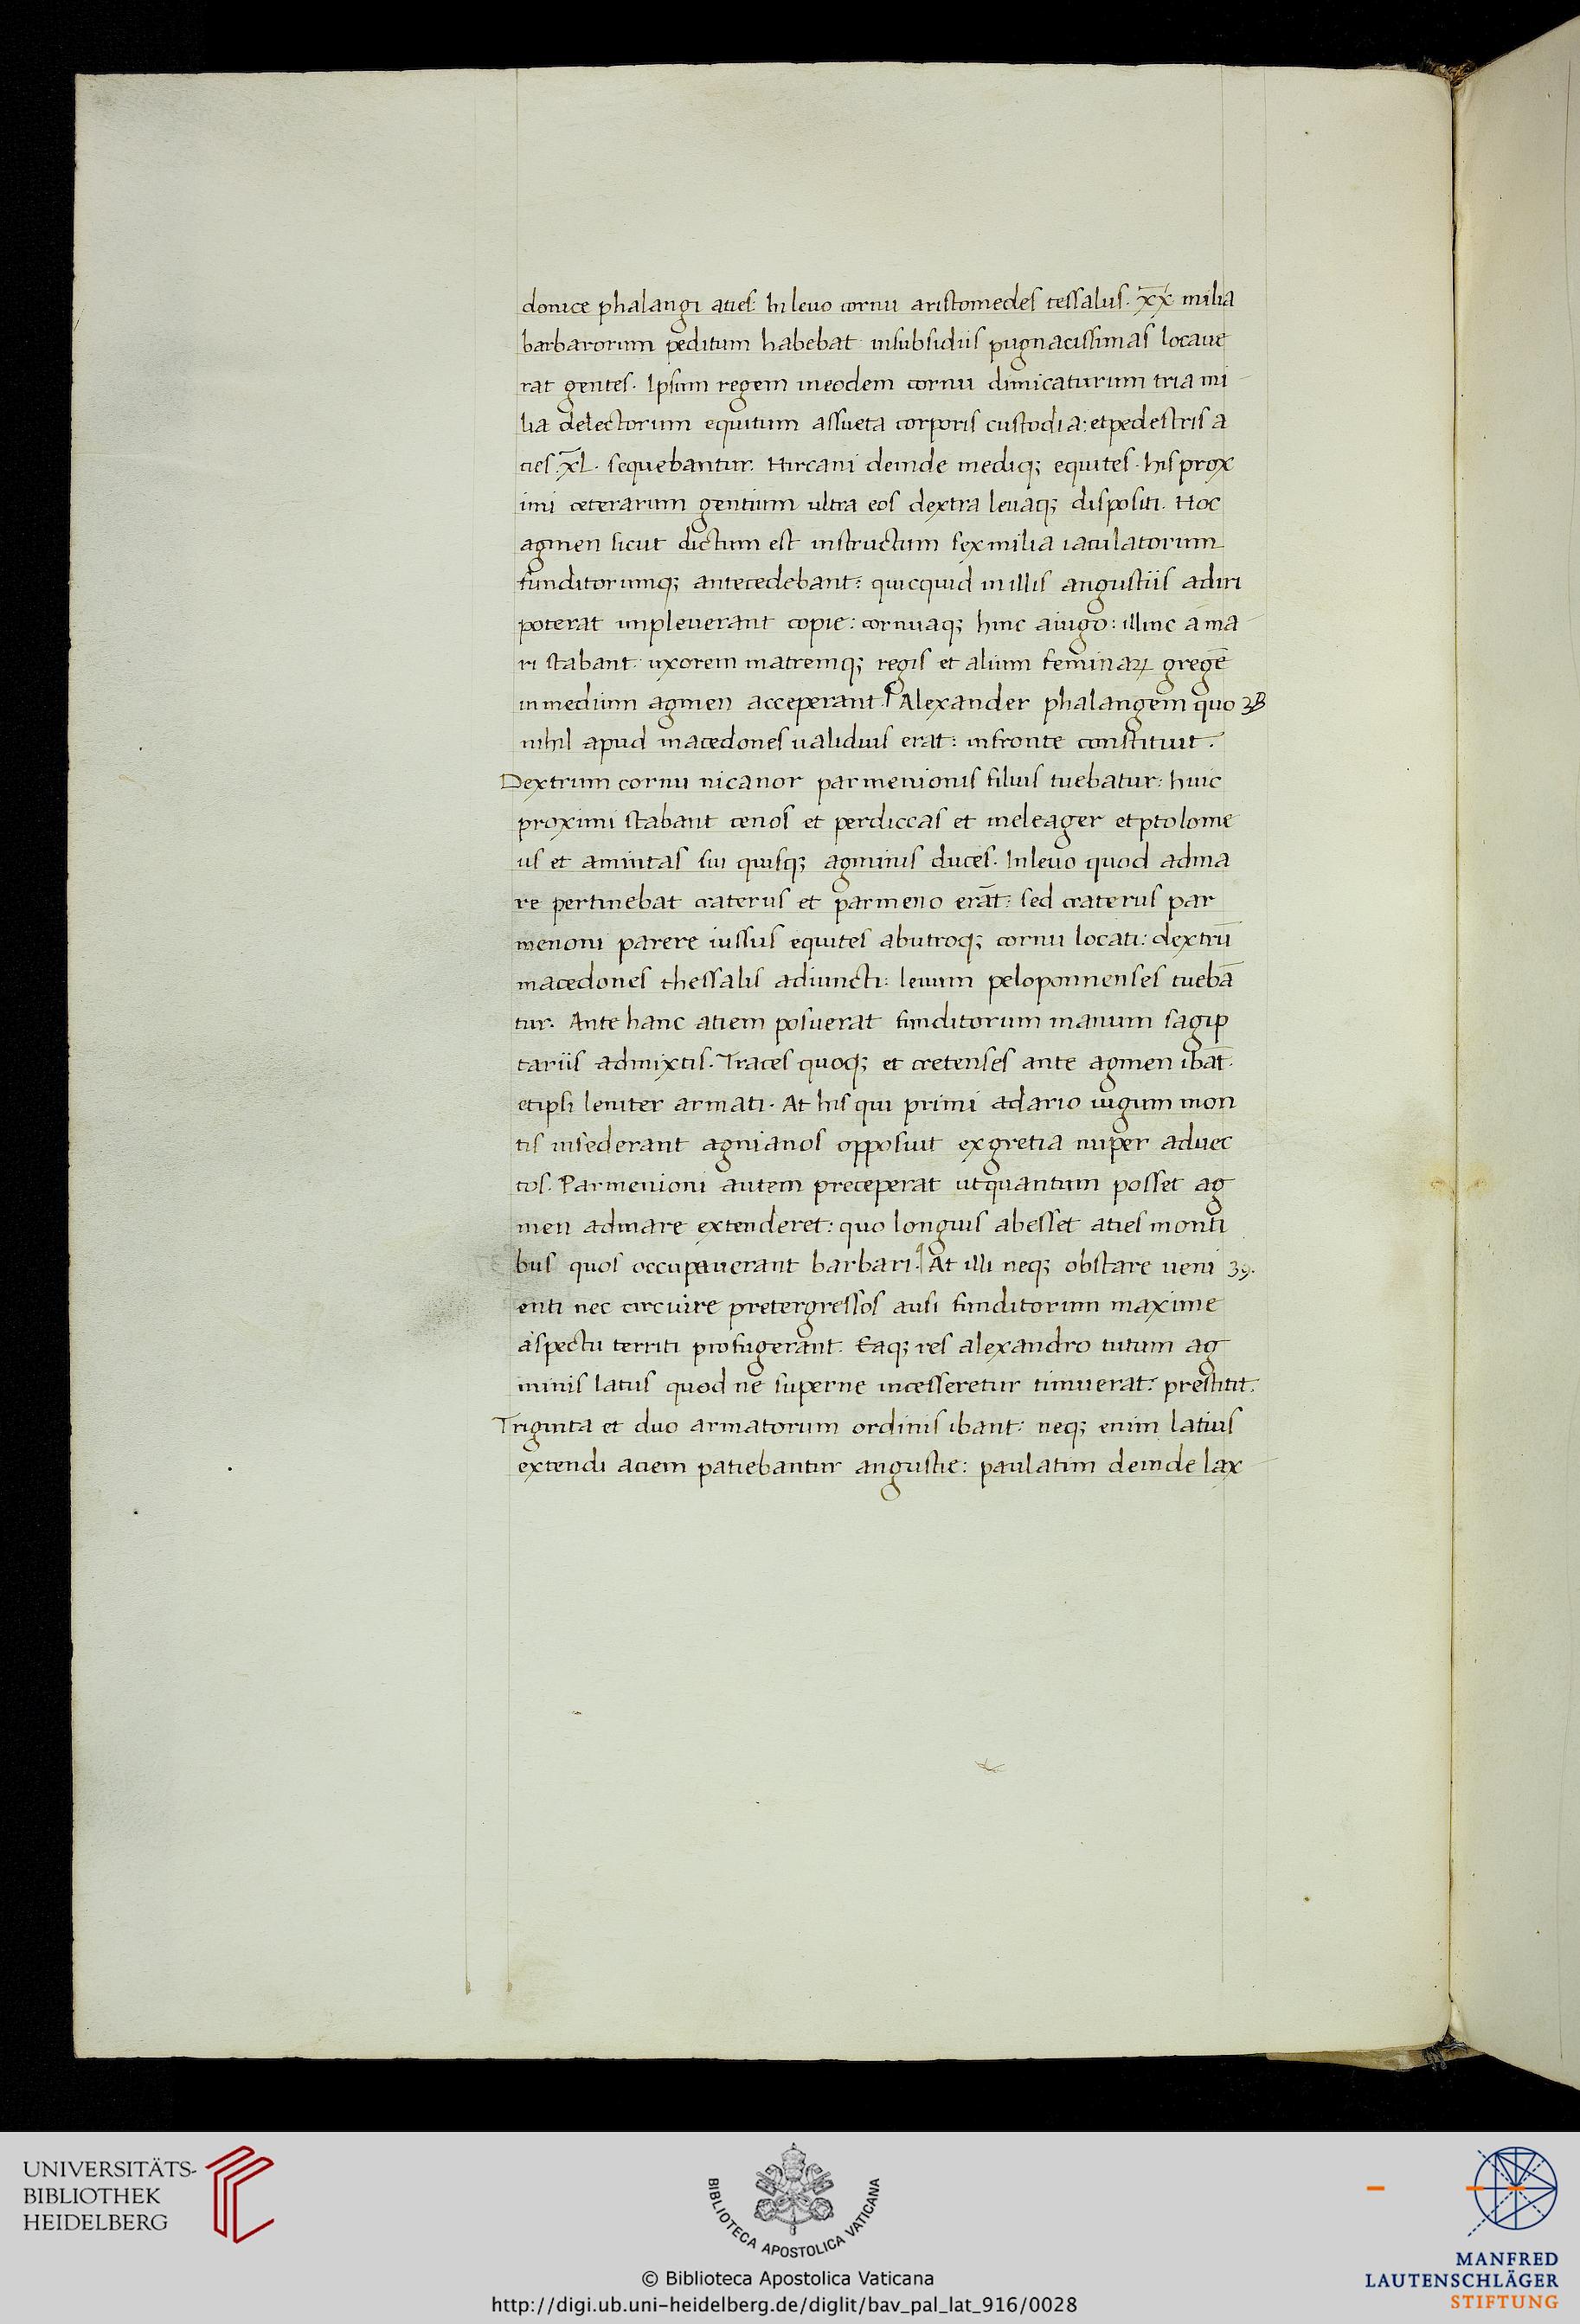 donice phalangi aties. In leuo cornu aristomedes tessalus. x̅x̅ milia
barbarorum peditum habebat insubsidiis pugnacissimas locaue
rat gentes. Ipsum regem ineodem cornu dimicaturum tria mi
lia delectorum equitum assueta corporis custodia: etpedestris a
ties. x̅l. sequebantur. Hircani deinde mediq; equites. his prox
imi ceterarum gentium ultra eos dextra leuaq; dispositi. Hoc
agmen sicut dictum est instructum sex milia iaculatorum
funditorumq; antecedebant: quicquid inillis angustiis adiri
poterat impleuerant copie: cornuaq; hinc aiugo: illinc a ma
ri stabant: uxorem matremq; regis et alium feminaꝝ gregē
inmedium agmen acceperant. Alexander phalangem quo 38
nihil apud macedones ualidius erat: infronte constituit.
Dextrum cornu nicanor parmenionis filius tuebatur: huic
proximi stabant cenos et perdiccas et meleager et ptolome
us et amintas sui quisq; agminis duces. Inleuo quod adma
re pertinebat craterus et parmeno erāt: sed craterus par
menoni parere iussus equites abutroq; cornu locati: dextrū
macedones thessalis adiuncti: leuum peloponnenses tuebā
tur. Ante hanc atiem posuerat funditorum manum sagip
tariis admixtis. Traces quoq; et cretenses ante agmen ibāt.
etipsi leniter armati. At his qui primi adario iugum mon
tis insederant agnianos opposuit exgretia nuper aduec
tos. Parmenioni autem preceperat utquantum posset ag
men admare extenderet: quo longius abesset aties monti
bus quos occupauerant barbari. At illi neq; obstare ueni 39.
enti nec circuire pretergressos ausi funditorum maxime
aspectu territi profugerant. Eaq; res alexandro tutum ag
minis latus quod ne superne incesseretur timuerat: prestitit.
Triginta et duo armatorum ordinis ibant: neq; enim latius
extendi atiem patiebantur angustie: paulatim deinde lax
UNIVERSITÄTS-
BIBLIOTHEK
HEIDELBERG
BIBLIOTECA APOSTOLICA VATICANA
© Biblioteca Apostolica Vaticana
http://digi.ub.uni-heidelberg.de/diglit/bav_pal_lat_916/0028
MANFRED
LAUTENSCHLÄGER
STIFTUNG